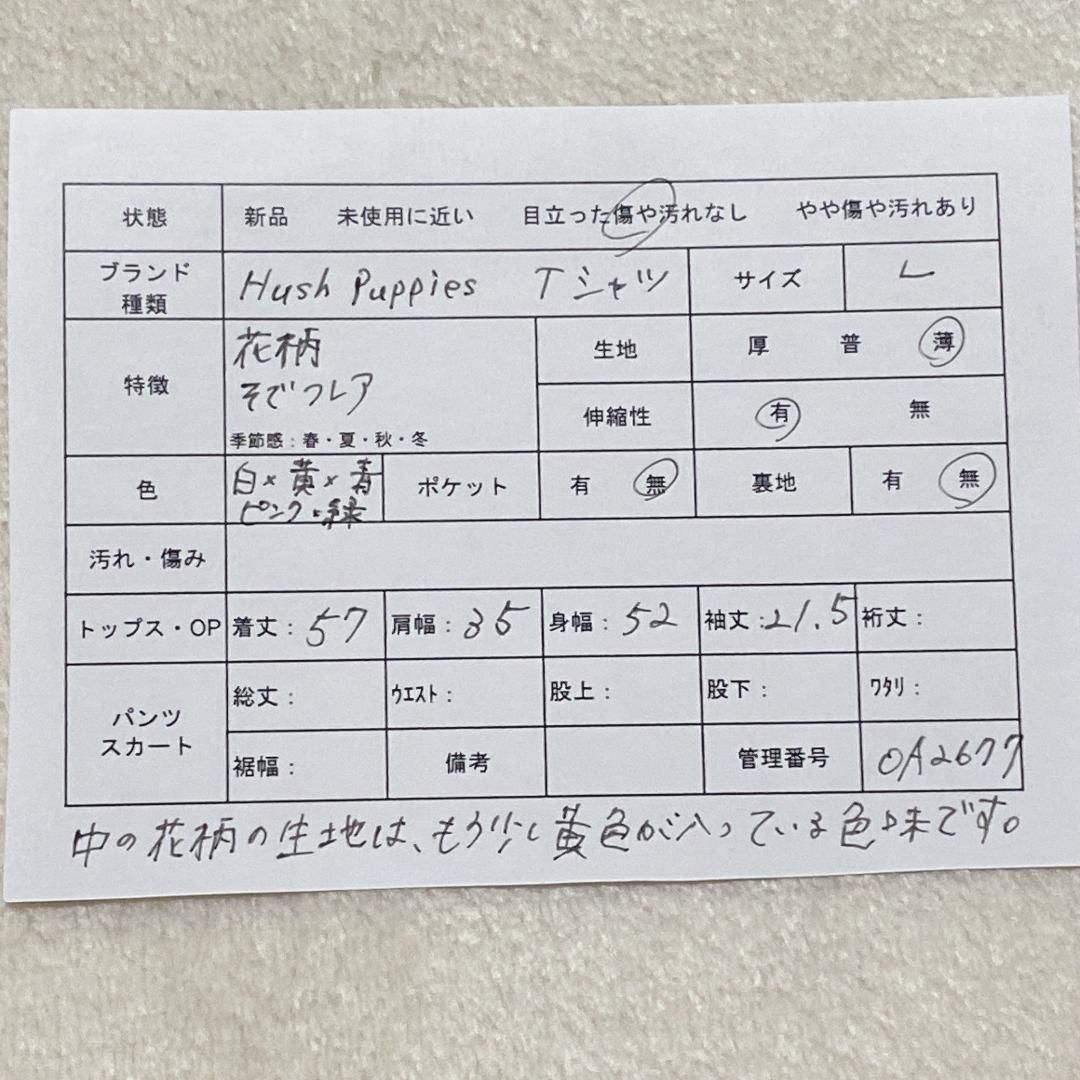 状態 新品 未使用に近い 目立った傷や汚れなし やや傷や汚れあり
ブランド 種類 Hush Puppies Tシャツ サイズ L
特徴 花柄 そでフレア 季節感：春・夏・秋・冬
生地 厚 普 薄
伸縮性 有 無
色 白×黄×青 ピンク×緑 ポケット 有 無 裏地 有 無
汚れ・傷み
トップス・OP 着丈：57 肩幅：35 身幅：52 袖丈：21.5 裄丈：
パンツ スカート 総丈： ウエスト： 股上： 股下： ワタリ：
裾幅： 備考 管理番号 OA2677
中の花柄の生地は、もう少し黄色が入っている色味です。